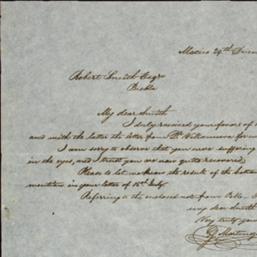 Mexico 24th Decem
Robert Smith Esqr
Puebla
My dear Smith
I duly received your favors of
and with the latter the letter from Dr
I am sorry to observe that you were suffering
in the eyes, and I trust you are now quite recovered.
Please to let me know the result of the
mention in your letter of 15th July
Referring to the enclosed note from
my dear Smith
Very truly your